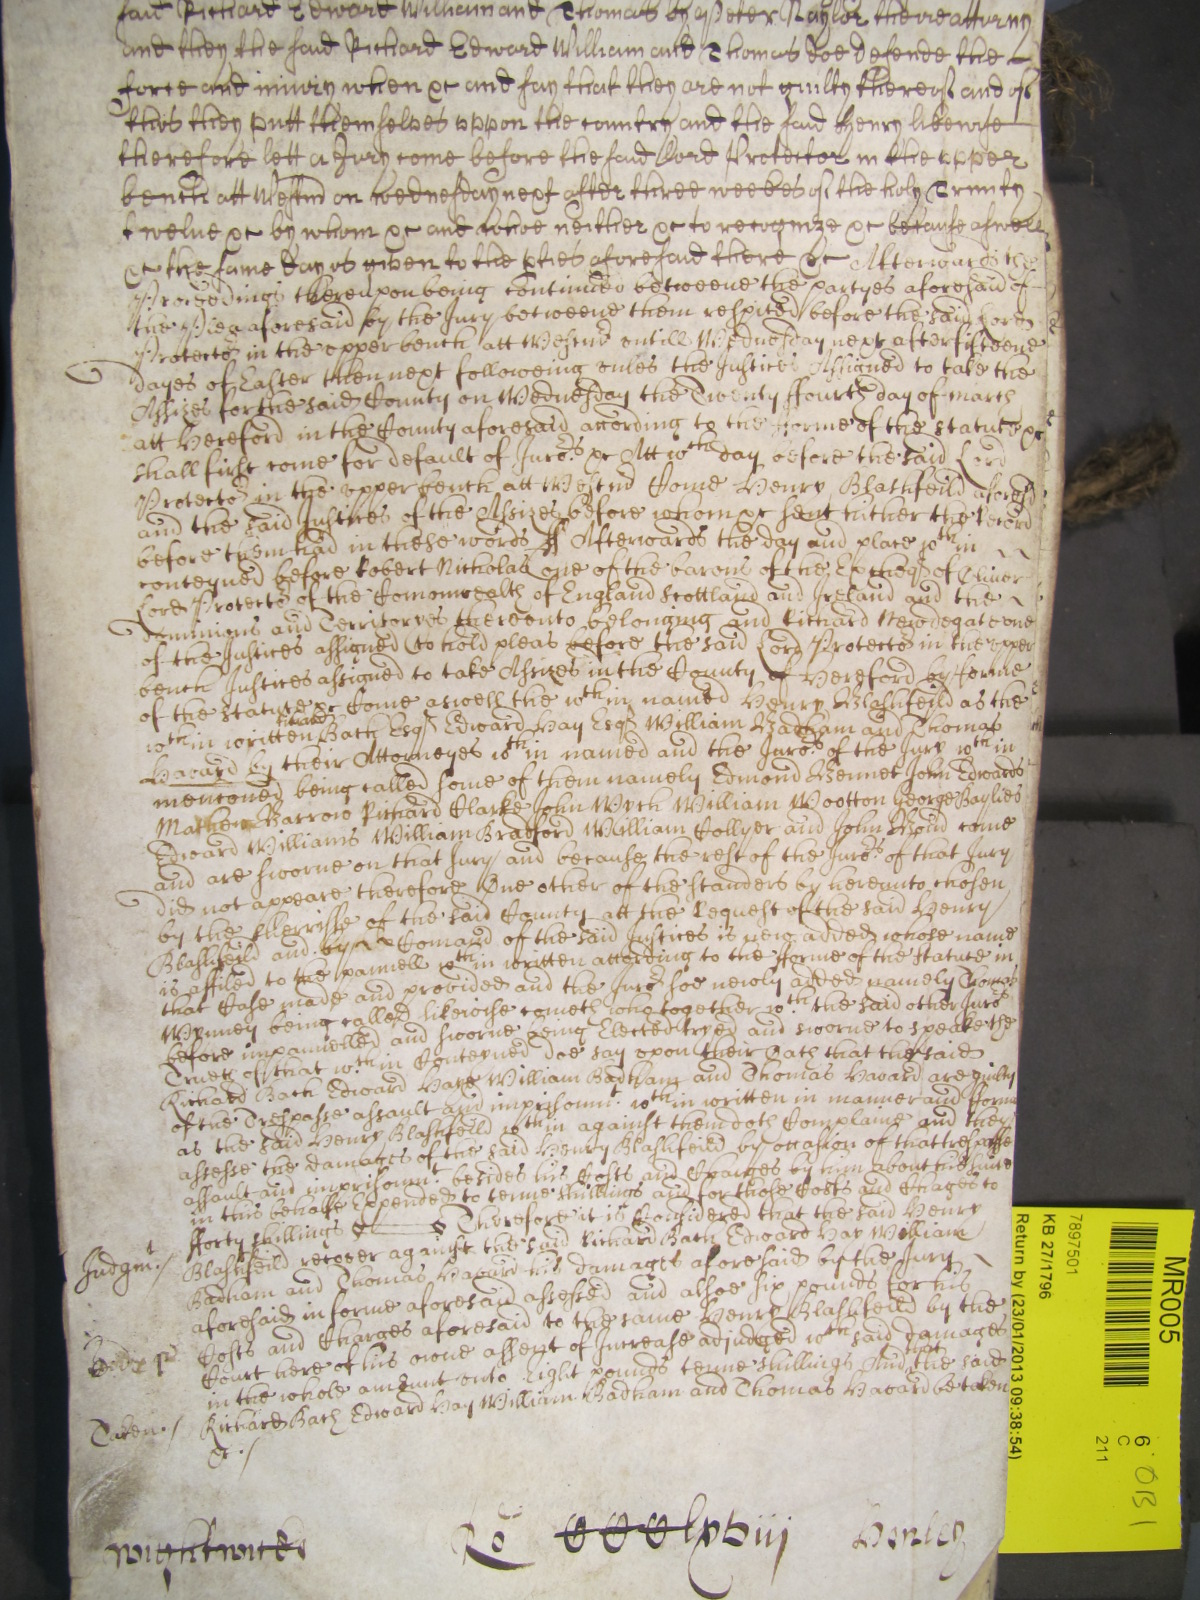 said Richard Edward William and Thomas by Peter Naylor their attorny
and they the said Richard Edward William and Thomas doe defende the
force and iniury when &c and say that they are not guilty thereof and of
this they putt themselves vppon the country and the said Henry likewise
therefore lett a Jury come before the said Lord Protector in the vpper
bench att Westm on wednesday next after three weekes of the holy Trinity
twelue &c by whom &c and whoe neither &c to recognize &c because aswell
&c the same day is given to the pties aforesaid there &c Afterwards the
Proceedings thereupon being continued betweene the partyes aforesaid of
the Plea aforesaid by the Jury betweene them respited before the said Lord
Protector in the vpper bench att Westmr vntill Wednesday next after fifteene
dayes of Easter then next followeing vnles the Justices Assigned to take the
Assizes for the said County on Wednesday the Twenty ffourth day of March
att Hereford in the County aforesaid according to the fforme of the statute &c
shall first come for default of Jurors &c Att wch day before the said Lord
Protector in the vpper bench att Westmr Come Henry Blashfeild aforesd
and the said Justices of the Assizes before whom &c sent hither the Record
before them had in these words ss Afterwards the day and place wthin
conteyned before Robert Nicholas one of the barons of the Exchequer of Oliver
Lord Protector of the Comonwealth of England Scottland and Ireland and the
Dominions and Territoryes thereunto belonging and Richard Newdegate one
of the Justices assigned to hold pleas before the said Lord Protector in the vpper
bench Justices assigned to take Assizes in the County of Hereford by forme
of the statute &c Come aswell the wthin named Henry Blashfeild as the
wthin written Richard Bach Esqr Edward Hay Esqr William Badham and Thomas
Havard by their Attorneyes wthin named and the Jurors of the Jury wthin
mencioned being called some of them namely Edmond Bennet John Edwards
Mathew Barrow Richard Clarke John Wych William Wootton George Baylies
Edward Williams William Bradford William Collyer and John come
and are sworne on that Jury and because the rest of the Jurors of that Jury
did not appeare therefore One other of the standers by hereunto chosen
by the Sherriffe of the said County att the Request of the said Henry
Blashfeild and by Comand of the said Justices is new added whose name
is affiled to the pannell wthin written according to the fforme of the statute in
that Case made and provided and the Juror soe newly added namely Thomas
being called likewise cometh who together wth the said other Jurors
before impannelled and sworne being Elected tryed and sworne to speake the
Trueth of that wthin Conteyned doe say vpon their Oath that the said
Richard Bach Edward Hay William Badham and Thomas Havard are guilty
of the Trespasse assault and imprisonmt wthin written in manner and fforme
as the said Henry Blashfeild wthin against them doth Complaine and they
assesse the damages of the said Henry Blashfeild by occasion of that trespasse
assault and imprisonmt besides his Costs and Charges by him about his suite
in this behalfe Expended to tenne shillings and for those Costs and Charges to
fforty shillings Therefore it is Considered that the said Henry
Judgmt Blashfeild recover against the said Richard Bach Edward Hay William
Badham and Thomas Havard his damages aforesaid by the Jury
aforesaid in forme aforesaid assessed and alsoe six pounds for his
Costs and Charges aforesaid to the same Henry Blashfeild by the
Court here of his owne assent of Increase adjudged wch said damages
in the whole amount vnto Eight pounds tenne shillings And that the said
Taken Richard Bach Edward Hay William Badham and Thomas Havard be taken
&c
Wightwicke Ro CCClxviii Henley
MR005
7897501
KB 27/1796
Return by (23/01/2013 09:38:54)
6
C
211